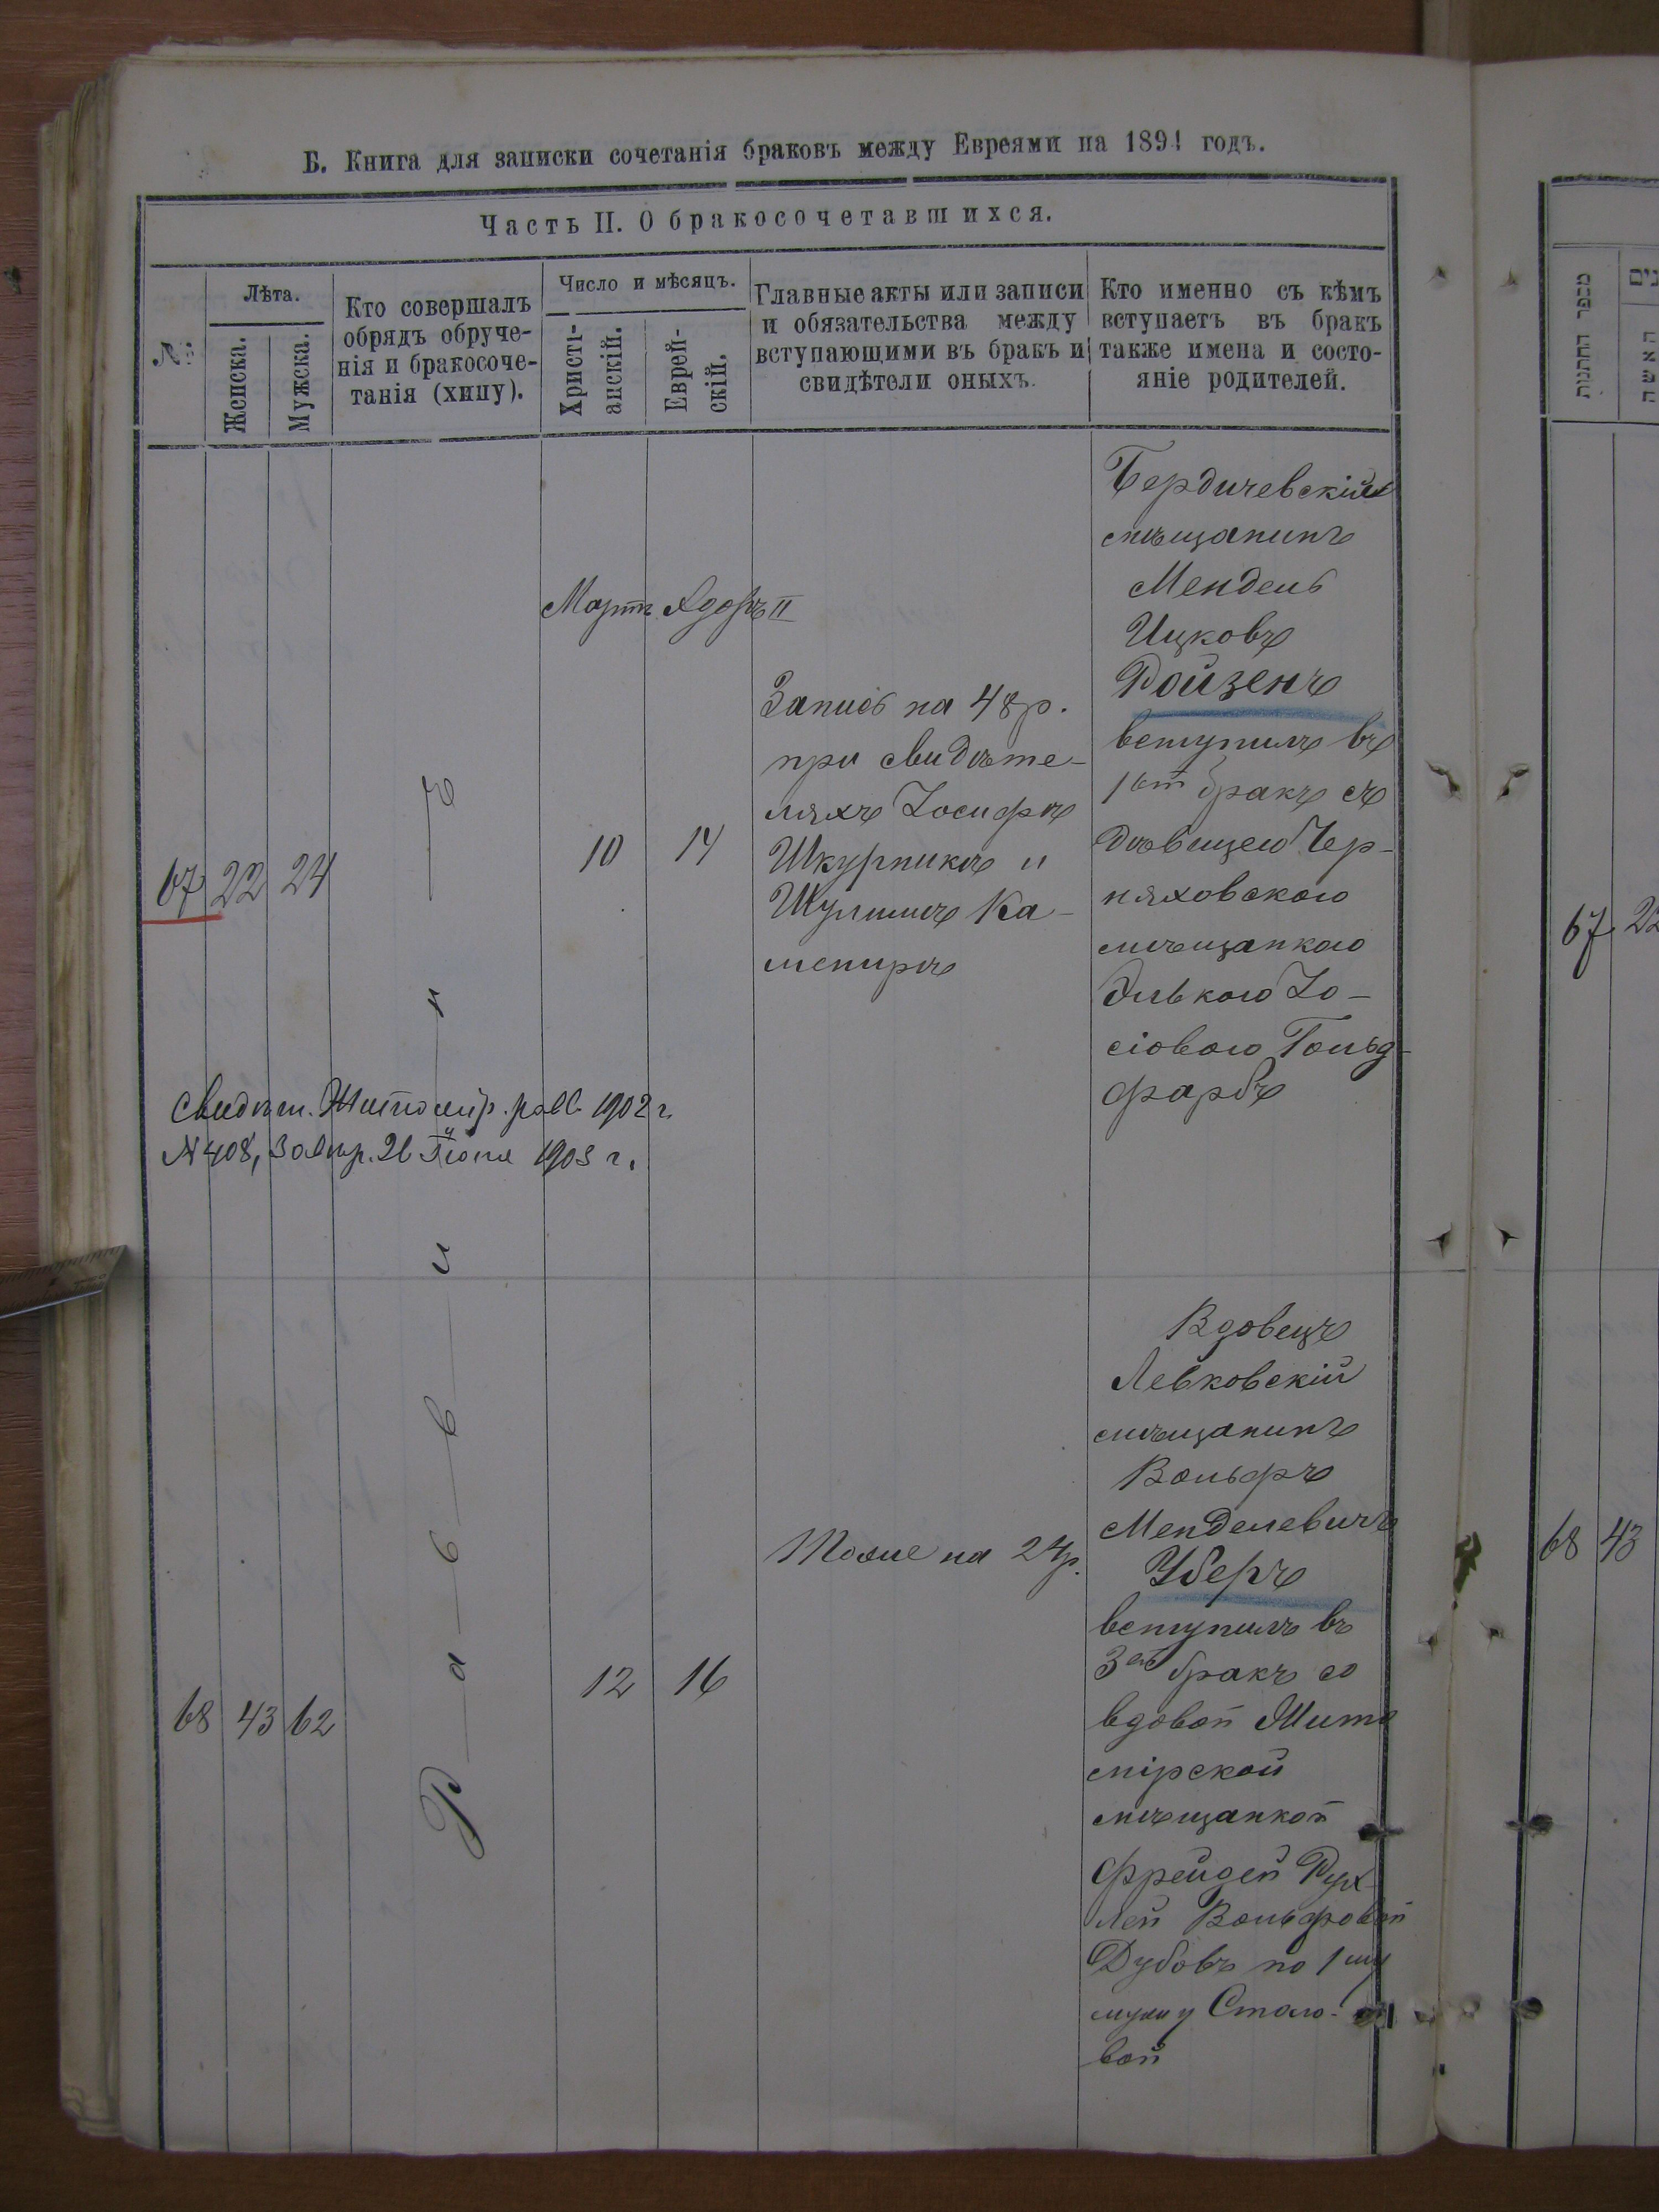 Б. Книга для записки сочетанія браковъ между Евреями на 1894 годъ.
Часть II. О бракосочетавшихся.
№
Лѣта.
Женска.
Мужска.
Кто совершалъ
обрядъ обруче-
нія и бракосоче-
танія (хипу).
Число и мѣсяцъ.
Христі-
анскій.
Еврей-
скій.
Главные акты или записи
и обязательства между
вступающими въ бракъ и
свидѣтели оныхъ.
Кто именно съ кѣмъ
вступаетъ въ бракъ
также имена и состо-
яніе родителей.
Мартъ Адаръ II
67 22 24
10 14
Запись на 48 р.
при свидѣте-
ляхъ Іосифѣ
Шкурникѣ и
Шулимѣ Ка-
менирѣ
Бердичевскій
мѣщанинъ
Мендель
Ицковъ
Ройзенъ
вступилъ въ
1ый бракъ съ
дѣвицею Чер-
няховскою
мѣщанкою
Элькою Іо-
сіовою Гольд-
фарбъ
Свидѣт. Житомір. равв. 1902 г.
№ 408, 30 Апр. 26 Іюня 1903 г.
Р—а—в—в—и—н—ъ
68 43 62
12 16
Тоже на 24 р.
Вдовецъ
Левковскій
мѣщанинъ
Вольфъ
Менделевичъ
Уберъ
вступилъ въ
3ій бракъ со
вдовой Жито
мірской
мѣщанкой
Фрейдей Рух-
лей Вольфовой
Дубовъ по 1му
мужу Столо-
вой
מספר החתונות
האשה
67 22
68 43